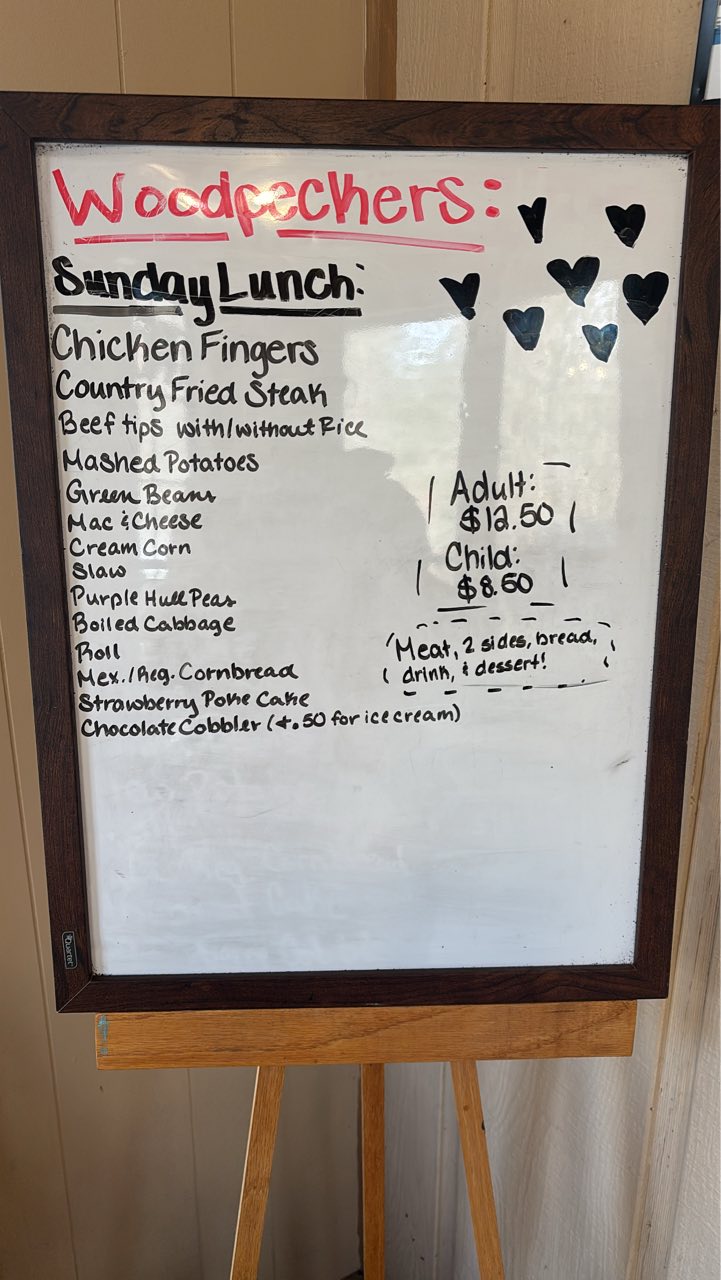 Woodpeckers:
Sunday Lunch:
Chicken Fingers
Country Fried Steak
Beef tips with/without Rice
Mashed Potatoes
Green Beans
Mac & Cheese
Cream Corn
Slaw
Purple Hull Peas
Boiled Cabbage
Roll
Mex./Reg. Cornbread
Strawberry Poke Cake
Chocolate Cobbler (+.50 for ice cream)
Adult:
$12.50
Child:
$8.50
Meat, 2 sides, bread,
drink, & dessert!
Quartet